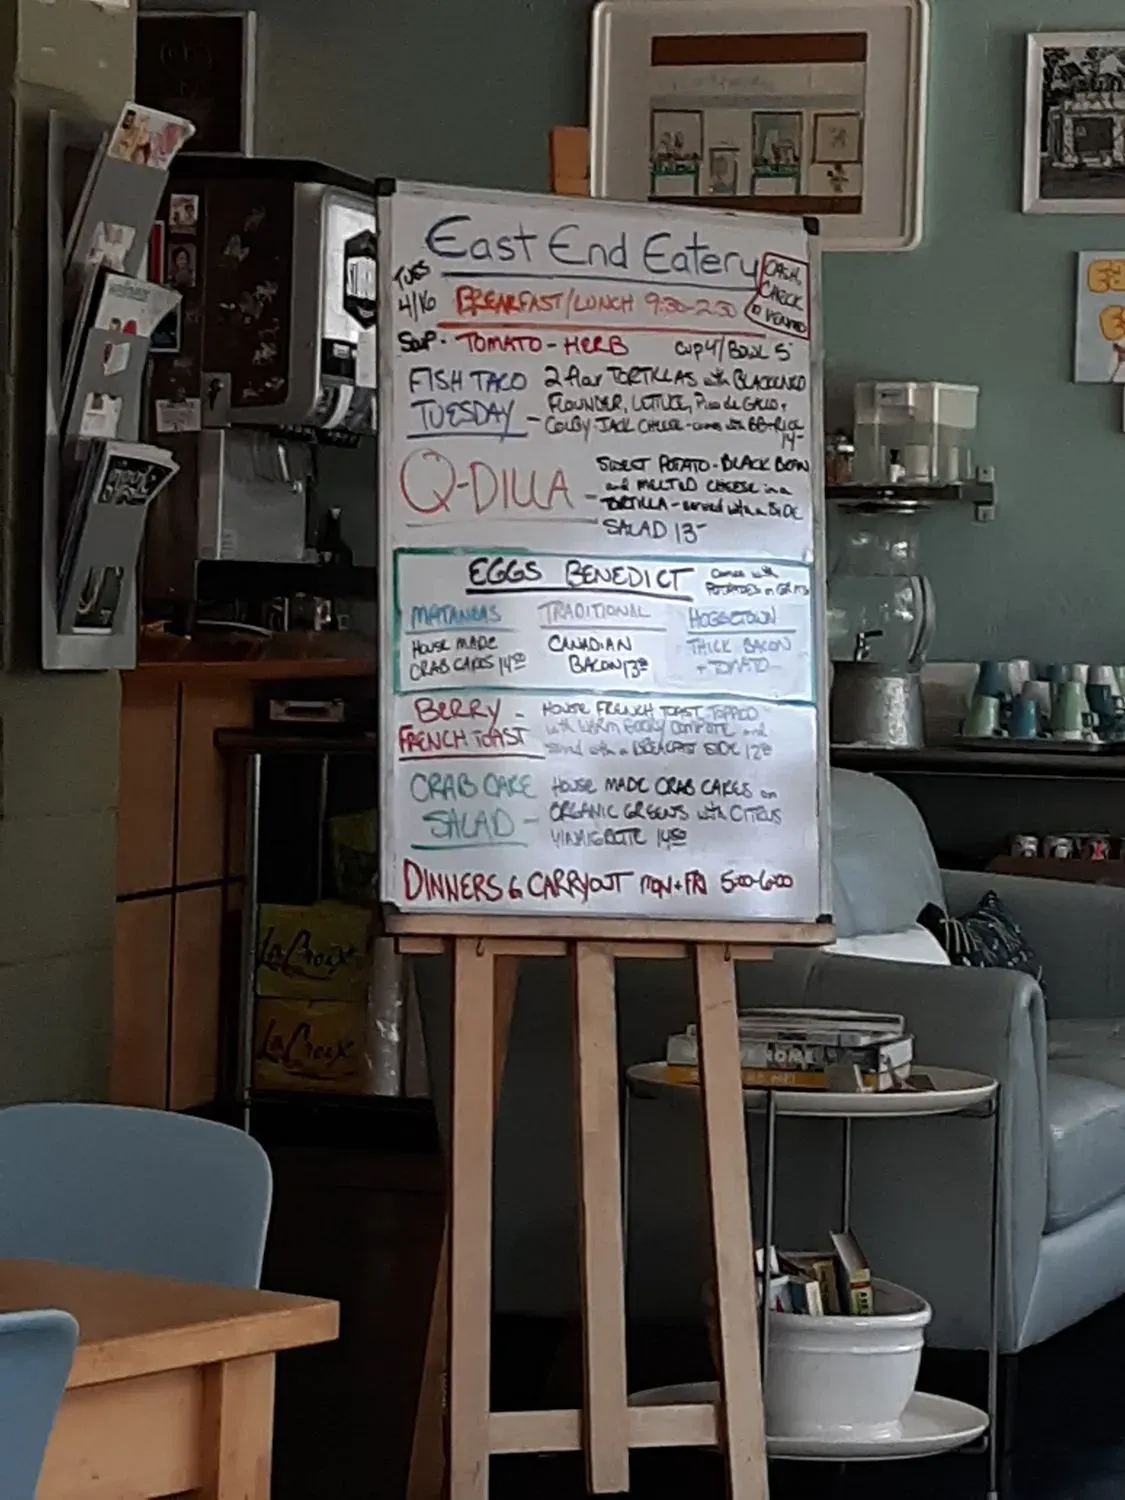 East End Eatery
TUES
4/16
CASH,
CHECK
or VENMO
BREAKFAST/LUNCH 9:30-2:30
SOUP - TOMATO - HERB CUP 4/BOWL 5
FISH TACO
TUESDAY -
2 flour TORTILLAS with BLACKENED
FLOUNDER, LETTUCE, Pico de GALLO,
COLBY-JACK CHEESE - comes with BB+RICE
14-
Q-DILLA -
SWEET POTATO - BLACK BEAN
and MELTED CHEESE in a
TORTILLA - served with a SIDE
SALAD 13-
EGGS BENEDICT
comes with
POTATOES or GRITS
MATANZAS
HOUSE MADE
CRAB CAKES 14.50
TRADITIONAL
CANADIAN
BACON 13.50
HOGGETOWN
THICK BACON
+ TOMATO
BERRY -
FRENCH TOAST
HOUSE FRENCH TOAST TOPPED
with WARM BERRY COMPOTE and
served with a BREAKFAST SIDE 12.50
CRAB CAKE
SALAD -
HOUSE MADE CRAB CAKES on
ORGANIC GREENS with CITRUS
VINAIGRETTE 14.50
DINNERS & CARRYOUT MON + FRI 5:00-6:00
LaCroix
LaCroix